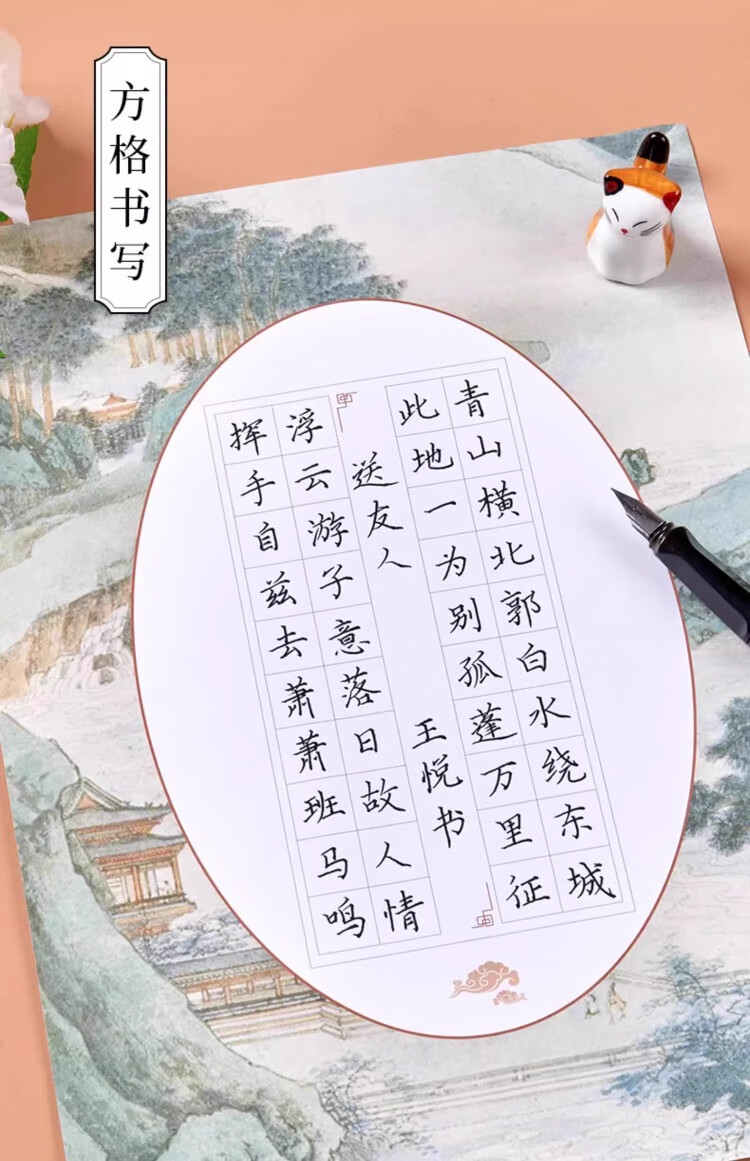 方格书写
青山横北郭白水绕东城
此地一为别孤蓬万里征
送友人
王悦书
浮云游子意落日故人情
挥手自兹去萧萧班马鸣